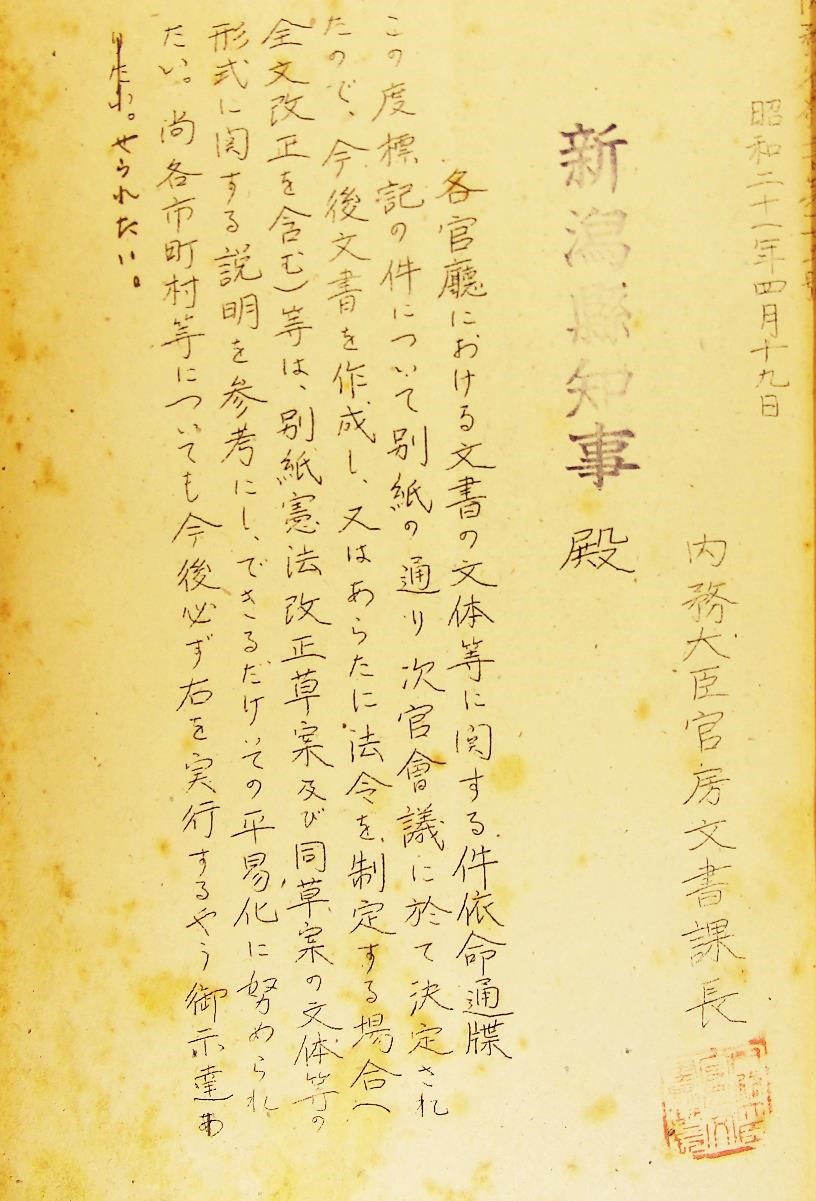 昭和二十一年四月十九日
内務大臣官房文書課長
新潟縣知事殿
各官廳における文書の文体等に関する件依命通牒
この度標記の件について別紙の通り次官會議に於て決定され
たので、今後文書を作成し、又はあらたに法令を制定する場合(
全文改正を含む)等は、別紙憲法改正草案及び同草案の文体等の
形式に関する説明を参考にし、できるだけその平易化に努められ
たい。尚各市町村等についても今後必ず右を実行するやう御示達あ
せられたい。